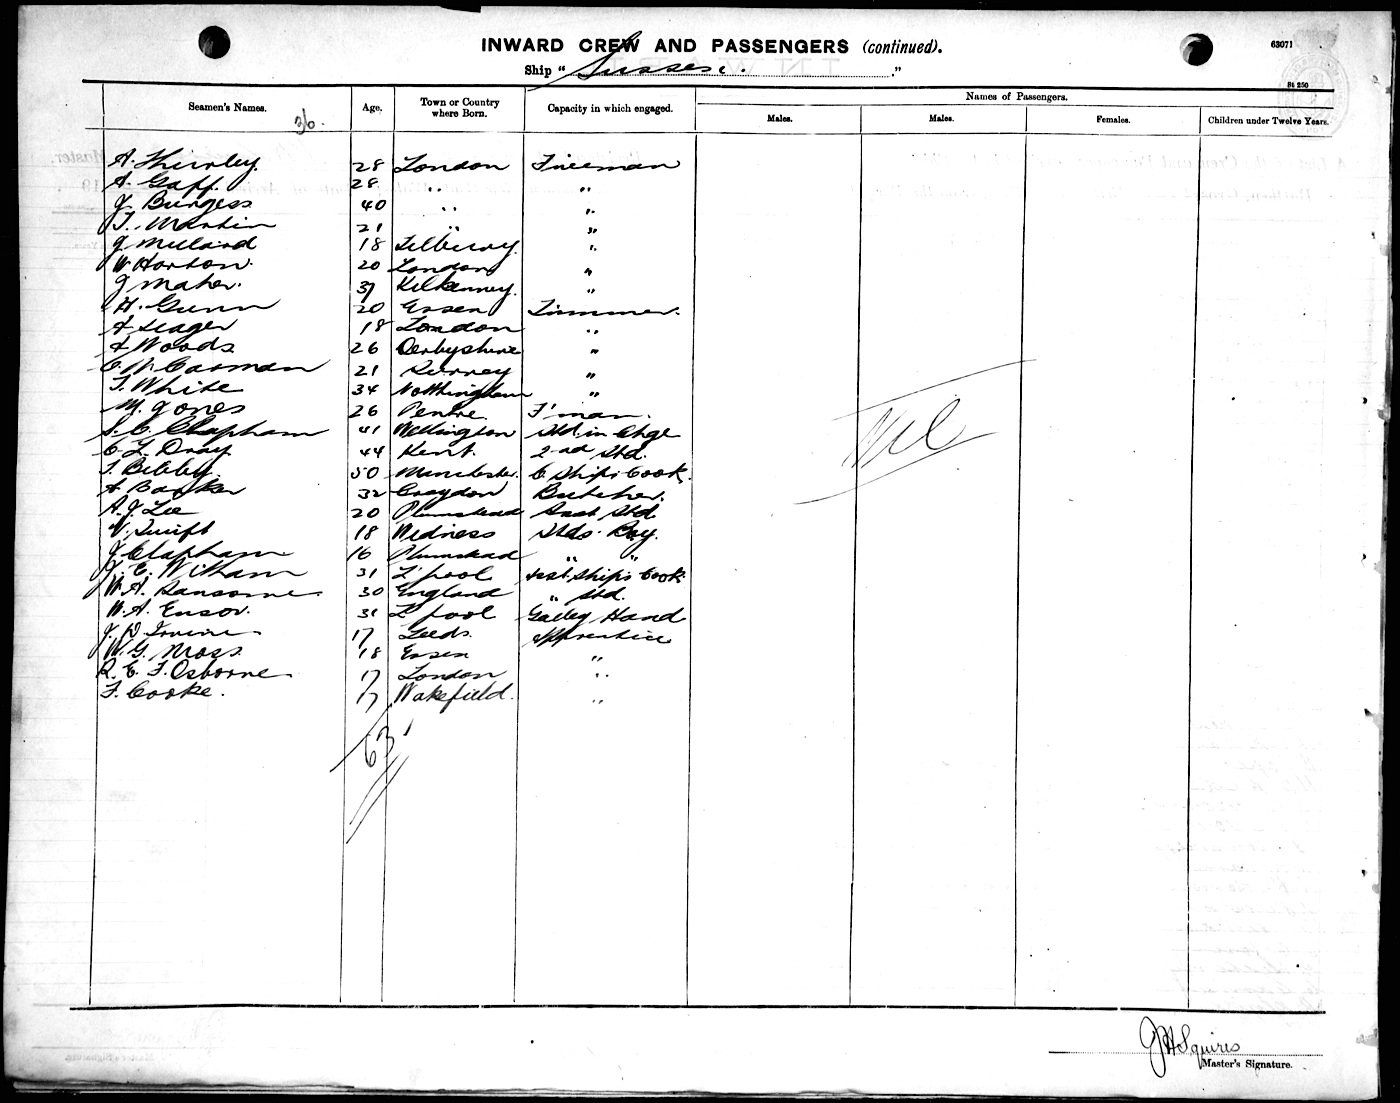 INWARD CREW AND PASSENGERS (continued).
63071
Ship "Sussex."
St 250
Seamen's Names. Age. Town or Country where Born. Capacity in which engaged. Names of Passengers.
Males. Males. Females. Children under Twelve Years.
36.
A. Thurley. 28 London Fireman
A. Gaff. 28 " "
J. Burgess 40 " "
T. Martin 21 " "
J Millard 18 Tilbury. "
W Horton. 20 London "
J Maher. 37 Kilkenny. "
H. Gunn 20 Essex Trimmer.
A Seager 18 London "
A Woods 26 Derbyshire "
C. W. Carman 21 Surrey "
T. White 34 Nottingham "
M. Jones 26 Pentre. F'man.
S. C. Clapham 41 Wellington Std. in Chge
C. L. Dray 44 Kent. 2nd Std.
T. Bibby. 50 Manchester. C. Ships Cook.
A Barker 32 Croydon Butcher.
A. J. Lee 20 Plumstead Asst Std
W. Swift 18 Widness Stds. Boy.
J Clapham 16 Plumstead " "
J. E. Witham 31 L'pool Asst. Ship's Cook.
W. A. Ransome 30 England " Std.
W. A. Ensor. 31 L'pool Galley Hand
J. D. Irvine 17 Leeds. Apprentice
W. G. Moss. 18 Essex "
R. E. F. Osborne 17 London "
F. Cooke. 17 Wakefield. "
63
Nil
J H Squires
Master's Signature.